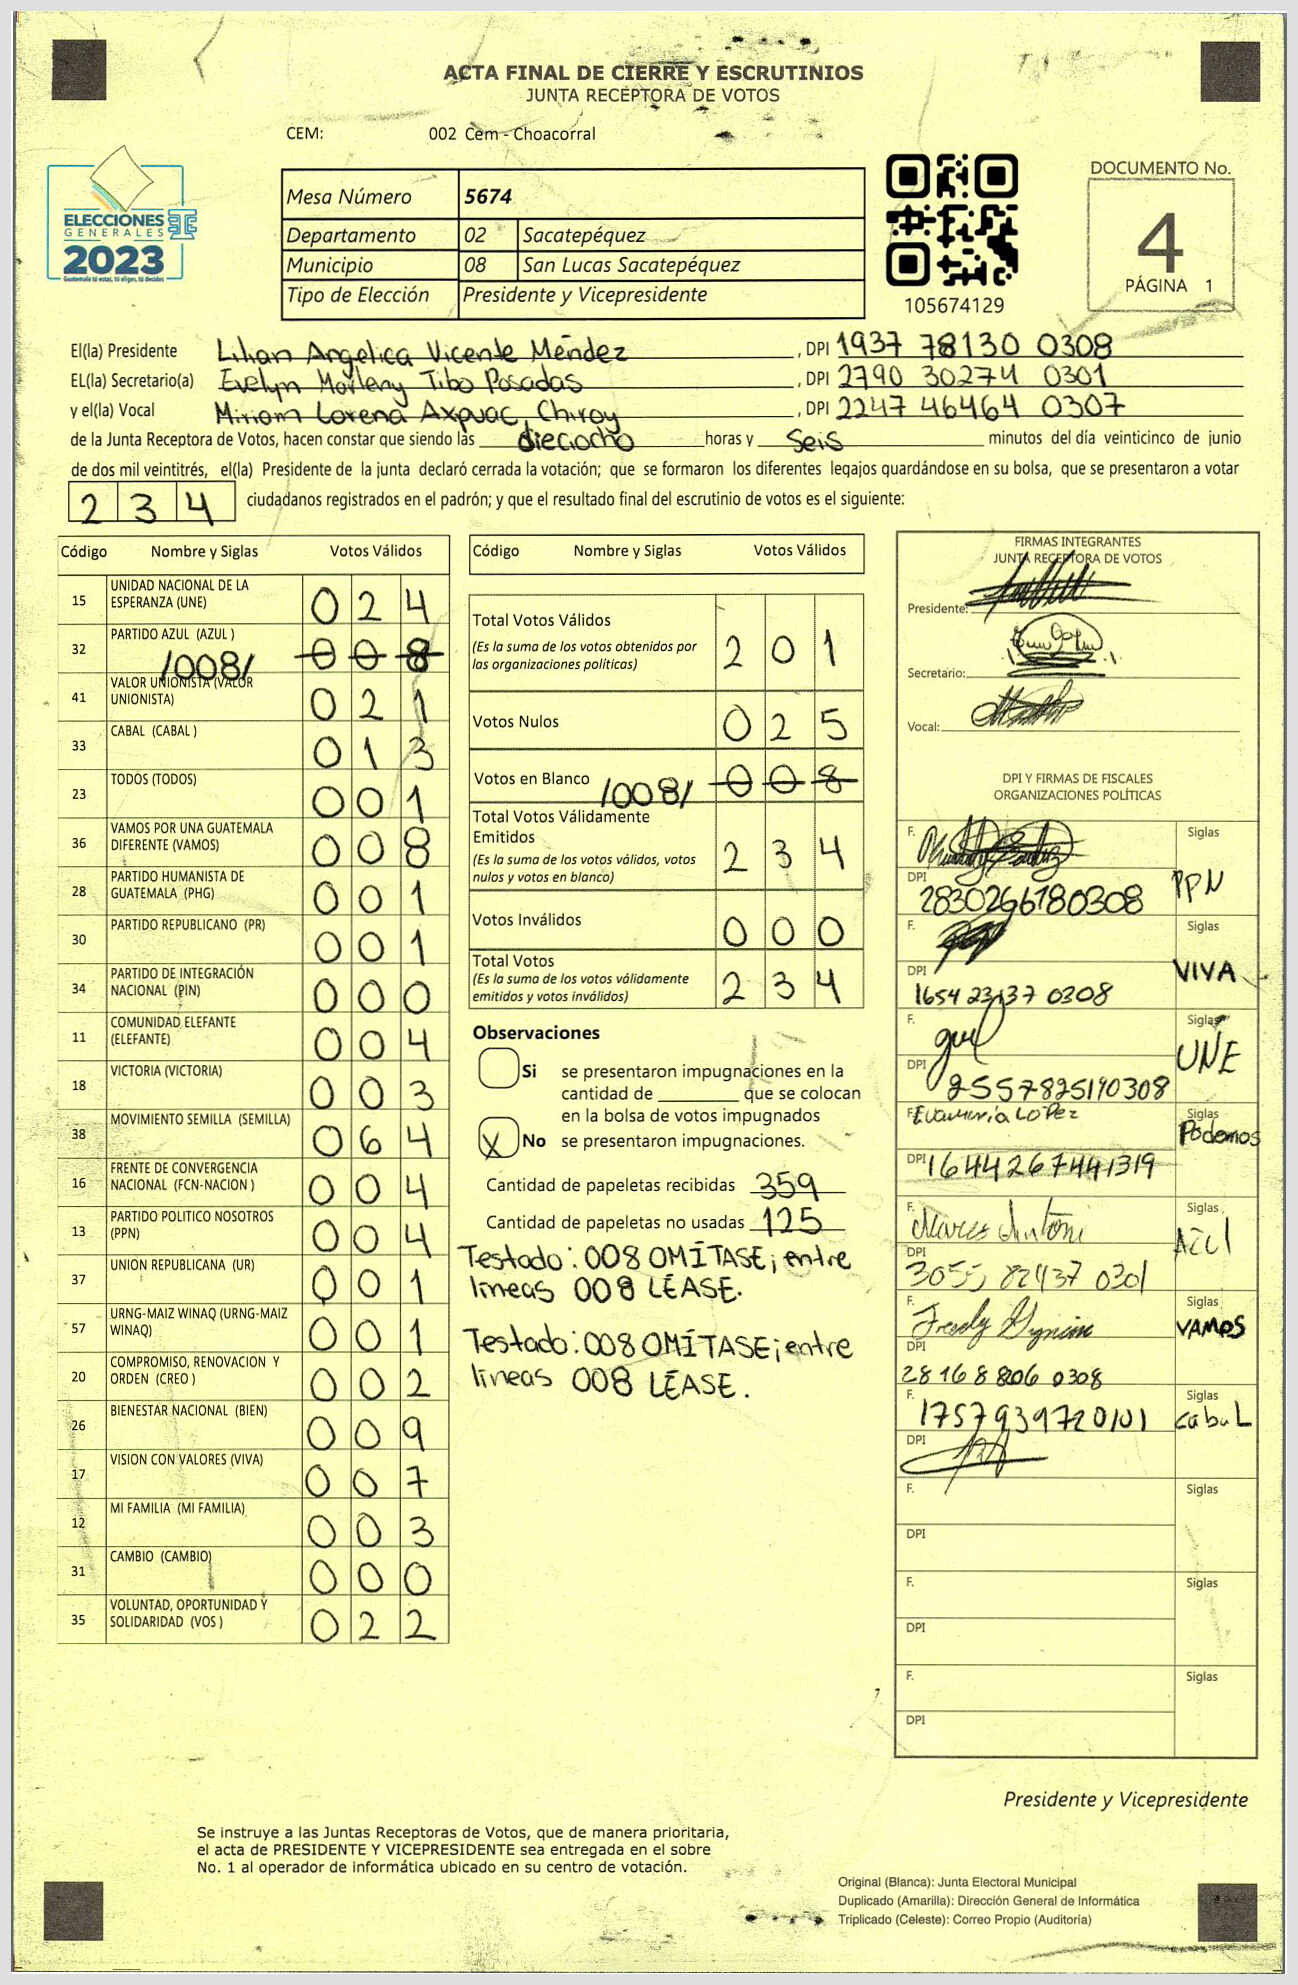 ACTA FINAL DE CIERRE Y ESCRUTINIOS
JUNTA RECEPTORA DE VOTOS
CEM: 002 Cem - Choacorral
ELECCIONES
GENERALES
2023
Guatemala tú estas, tú eliges, tú decides
Mesa Número 5674
Departamento 02 Sacatepéquez
Municipio 08 San Lucas Sacatepéquez
Tipo de Elección Presidente y Vicepresidente
105674129
DOCUMENTO No.
4
PÁGINA 1
El(la) Presidente Lilian Angelica Vicente Méndez, DPI 1937 78130 0308
EL(la) Secretario(a) Evelyn Marleny Tibo Posadas, DPI 2790 30274 0301
y el(la) Vocal Miriam Lorena Axpuac Chiroy, DPI 2247 46464 0307
de la Junta Receptora de Votos, hacen constar que siendo las dieciocho horas y seis minutos del día veinticinco de junio
de dos mil veintitrés, el(la) Presidente de la junta declaró cerrada la votación; que se formaron los diferentes legajos guardándose en su bolsa, que se presentaron a votar
234 ciudadanos registrados en el padrón; y que el resultado final del escrutinio de votos es el siguiente:
Código Nombre y Siglas Votos Válidos
15 UNIDAD NACIONAL DE LA ESPERANZA (UNE) 024
32 PARTIDO AZUL (AZUL ) /008/ 008
41 VALOR UNIONISTA (VALOR UNIONISTA) 021
33 CABAL (CABAL ) 013
23 TODOS (TODOS) 001
36 VAMOS POR UNA GUATEMALA DIFERENTE (VAMOS) 008
28 PARTIDO HUMANISTA DE GUATEMALA (PHG) 001
30 PARTIDO REPUBLICANO (PR) 001
34 PARTIDO DE INTEGRACIÓN NACIONAL (PIN) 000
11 COMUNIDAD ELEFANTE (ELEFANTE) 004
18 VICTORIA (VICTORIA) 003
38 MOVIMIENTO SEMILLA (SEMILLA) 064
16 FRENTE DE CONVERGENCIA NACIONAL (FCN-NACION ) 004
13 PARTIDO POLITICO NOSOTROS (PPN) 004
37 UNION REPUBLICANA (UR) 001
57 URNG-MAIZ WINAQ (URNG-MAIZ WINAQ) 001
20 COMPROMISO, RENOVACION Y ORDEN (CREO ) 002
26 BIENESTAR NACIONAL (BIEN) 009
17 VISION CON VALORES (VIVA) 007
12 MI FAMILIA (MI FAMILIA) 003
31 CAMBIO (CAMBIO) 000
35 VOLUNTAD, OPORTUNIDAD Y SOLIDARIDAD (VOS ) 022
Código Nombre y Siglas Votos Válidos
Total Votos Válidos 201
(Es la suma de los votos obtenidos por
las organizaciones políticas)
Votos Nulos 025
Votos en Blanco /008/ 008
Total Votos Válidamente
Emitidos 234
(Es la suma de los votos válidos, votos
nulos y votos en blanco)
Votos Inválidos 000
Total Votos 234
(Es la suma de los votos válidamente
emitidos y votos inválidos)
Observaciones
Si se presentaron impugnaciones en la
cantidad de ________ que se colocan
en la bolsa de votos impugnados
X No se presentaron impugnaciones.
Cantidad de papeletas recibidas 359
Cantidad de papeletas no usadas 125
Testado: 008 OMÍTASE; entre
lineas 008 LÉASE.
Testado: 008 OMÍTASE; entre
lineas 008 LÉASE.
FIRMAS INTEGRANTES
JUNTA RECEPTORA DE VOTOS
Presidente:
Secretario:
Vocal:
DPI Y FIRMAS DE FISCALES
ORGANIZACIONES POLÍTICAS
F. Siglas
DPI 2830266780308 PPN
F. Siglas
DPI 1654 23137 0308 VIVA
F. Siglas
DPI 2557825190308 UNE
F. Evamaria LoPez Siglas
DPI 1644267441319 Podemos
F. Siglas
DPI 3055 82437 0301 AZUL
F. Fredy Siglas
DPI 28168 806 0308 VAMOS
F. 1757939720101 Siglas
DPI cabaL
F. Siglas
DPI
F. Siglas
DPI
F. Siglas
DPI
Presidente y Vicepresidente
Se instruye a las Juntas Receptoras de Votos, que de manera prioritaria,
el acta de PRESIDENTE Y VICEPRESIDENTE sea entregada en el sobre
No. 1 al operador de informática ubicado en su centro de votación.
Original (Blanca): Junta Electoral Municipal
Duplicado (Amarilla): Dirección General de Informática
Triplicado (Celeste): Correo Propio (Auditoría)